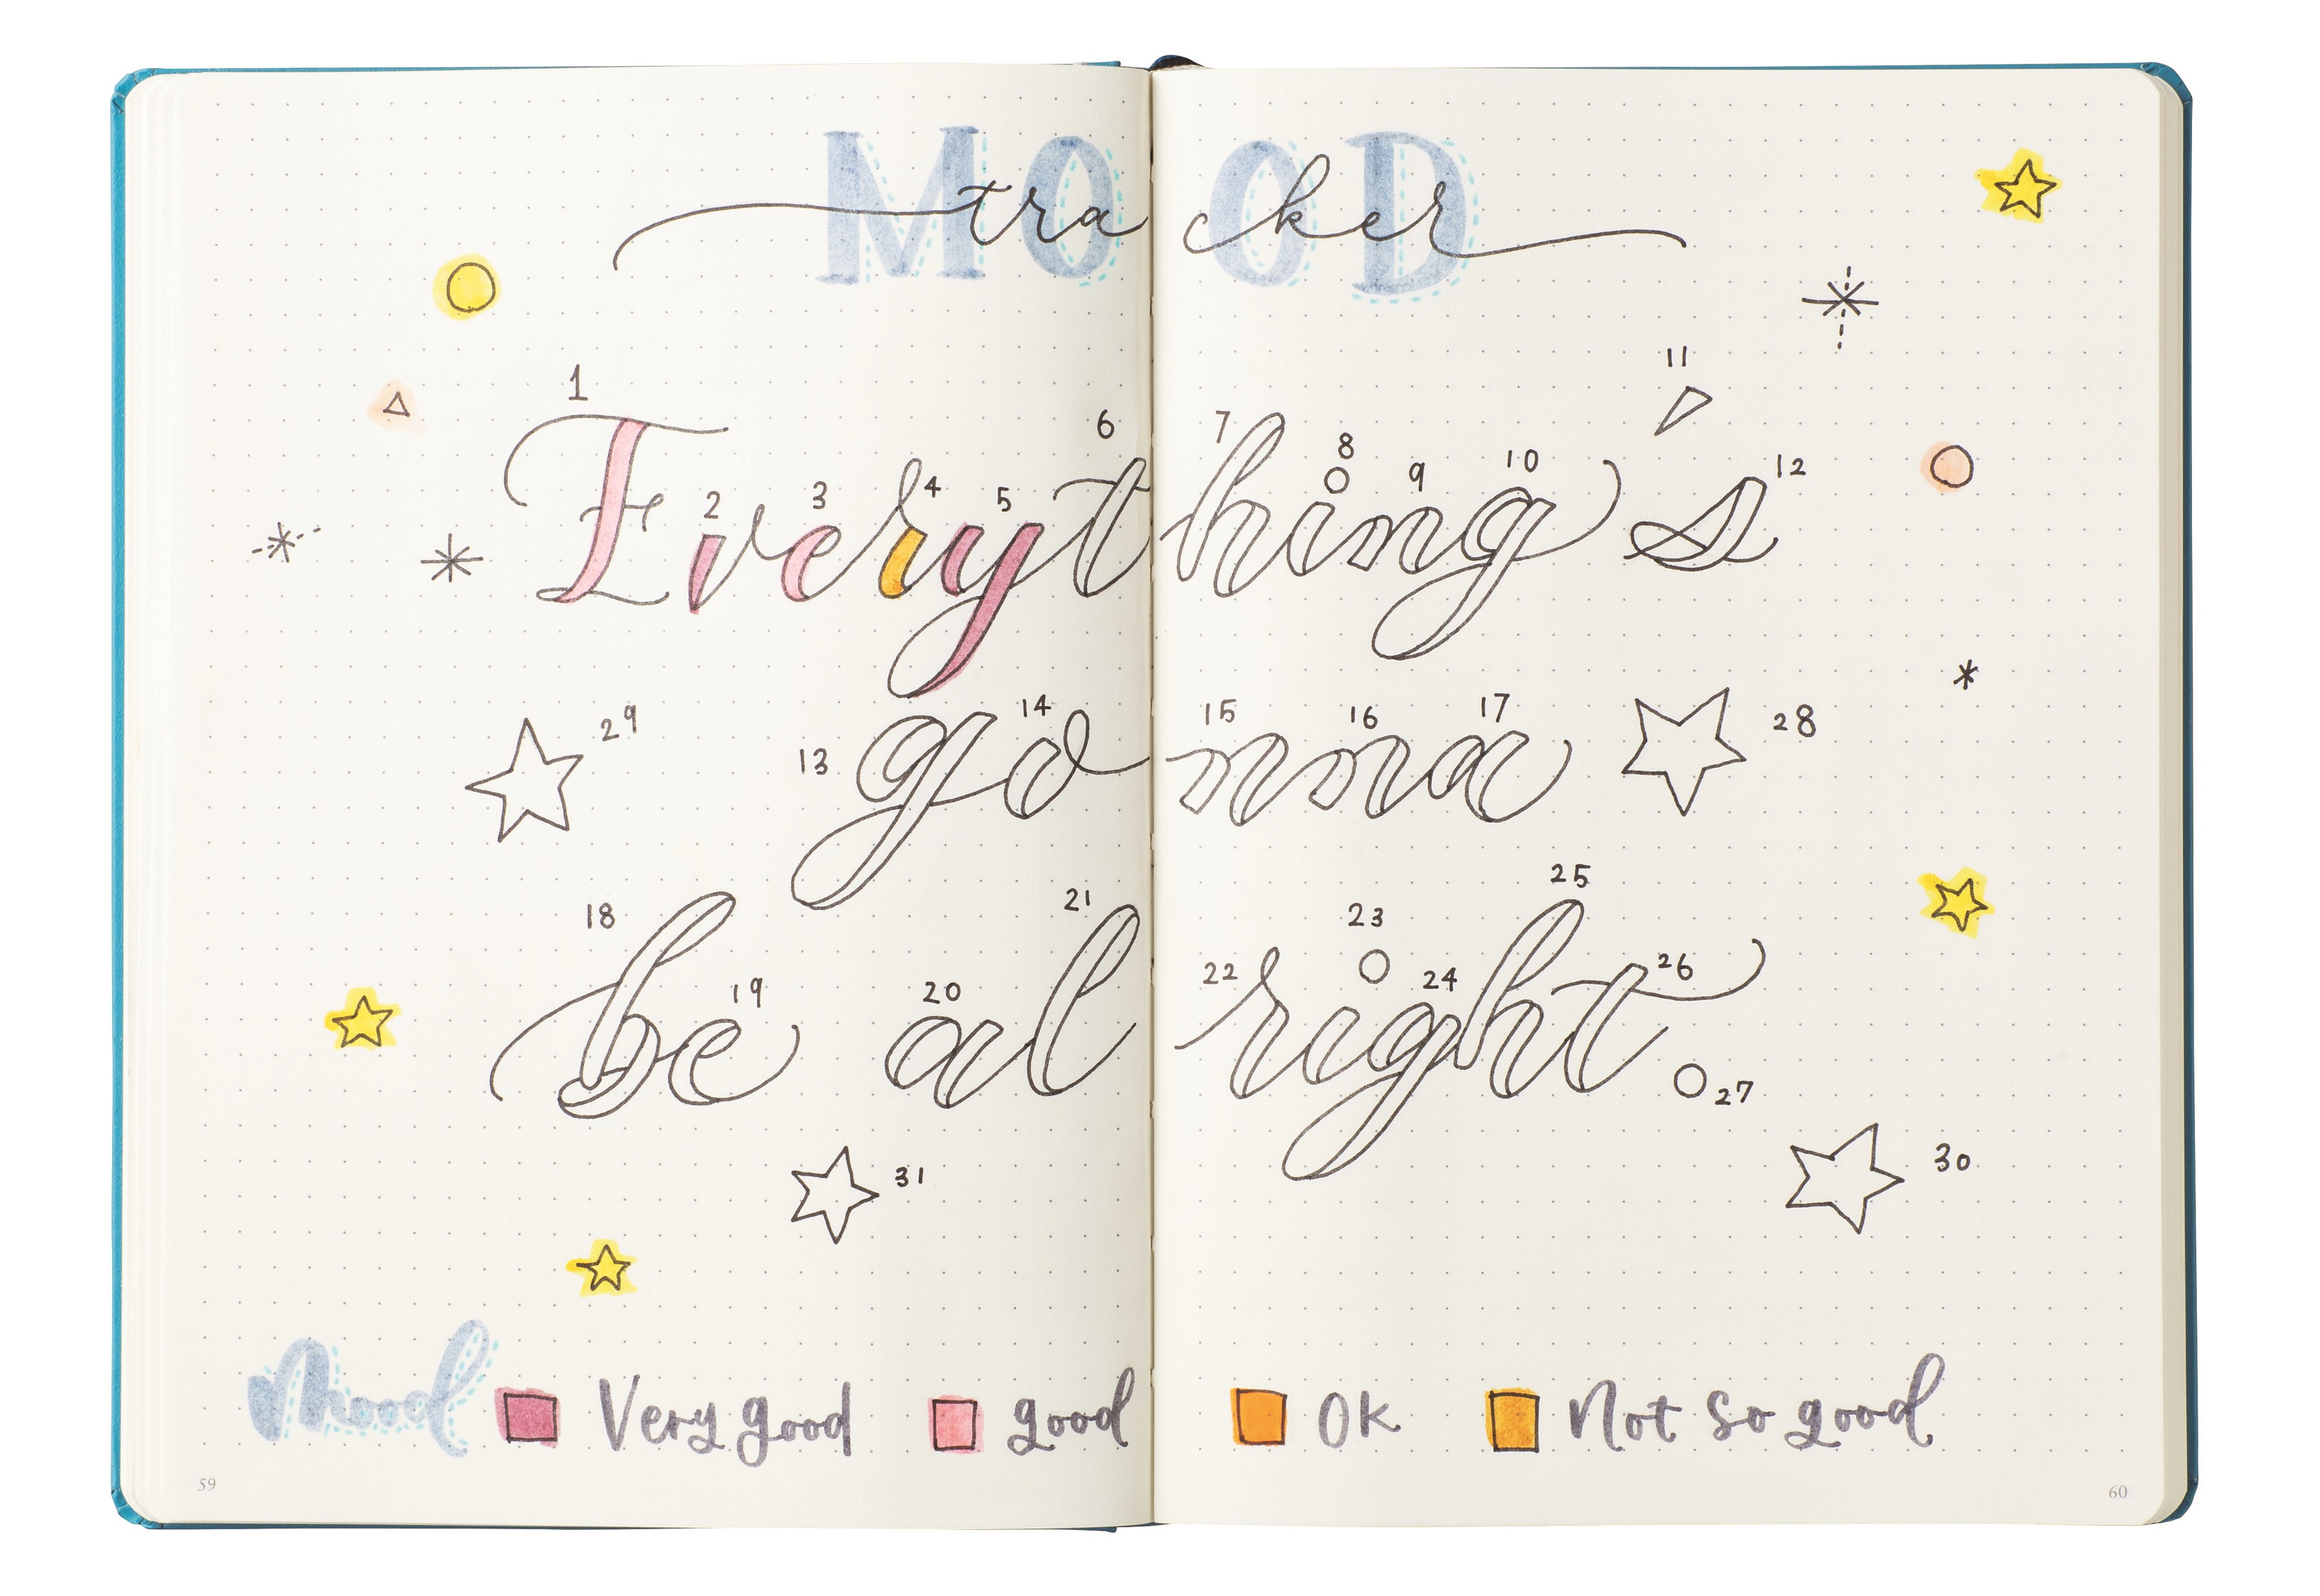 MOOD
tracker
1 2 3 4 5 6 7 8 9 10 11 12
Everything's
29 13 14 15 16 17 28
gonna
18 19 20 21 22 23 24 25 26 27
be alright.
31 30
Mood Very good good OK Not so good
59 60